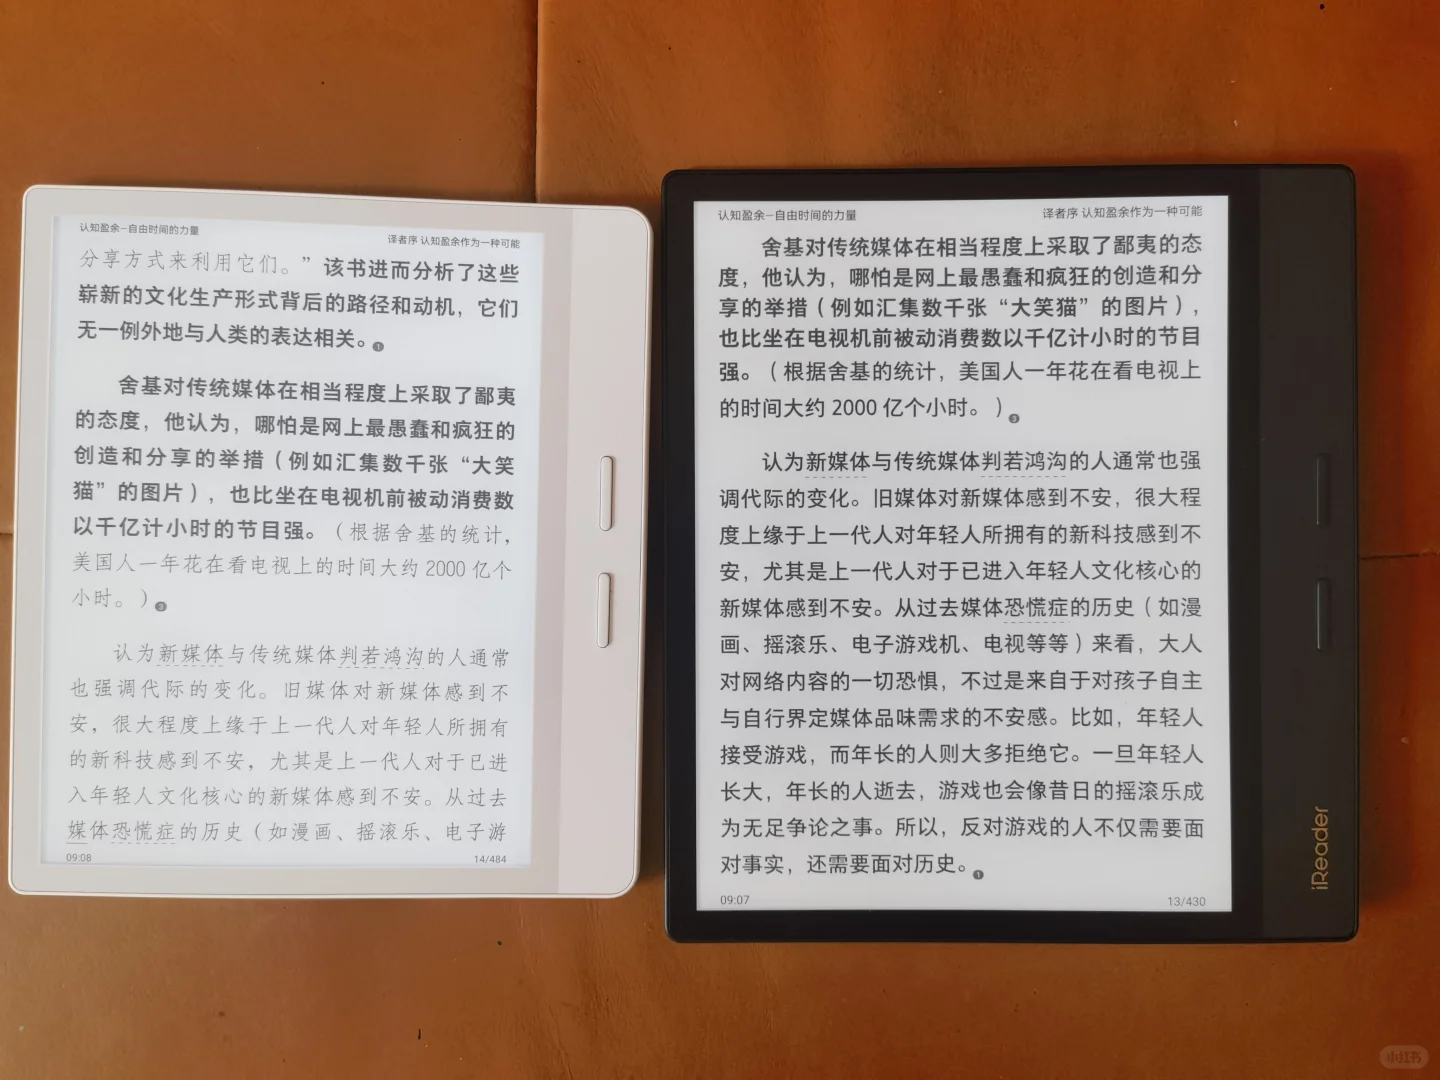 认知盈余—自由时间的力量
译者序 认知盈余作为一种可能
分享方式来利用它们。”该书进而分析了这些
崭新的文化生产形式背后的路径和动机，它们
无一例外地与人类的表达相关。①
舍基对传统媒体在相当程度上采取了鄙夷
的态度，他认为，哪怕是网上最愚蠢和疯狂的
创造和分享的举措（例如汇集数千张“大笑
猫”的图片），也比坐在电视机前被动消费数
以千亿计小时的节目强。（根据舍基的统计，
美国人一年花在看电视上的时间大约 2000 亿个
小时。）③
认为新媒体与传统媒体判若鸿沟的人通常
也强调代际的变化。旧媒体对新媒体感到不
安，很大程度上缘于上一代人对年轻人所拥有
的新科技感到不安，尤其是上一代人对于已进
入年轻人文化核心的新媒体感到不安。从过去
媒体恐慌症的历史（如漫画、摇滚乐、电子游
09:08
14/484
认知盈余—自由时间的力量
译者序 认知盈余作为一种可能
舍基对传统媒体在相当程度上采取了鄙夷的态
度，他认为，哪怕是网上最愚蠢和疯狂的创造和分
享的举措（例如汇集数千张“大笑猫”的图片），
也比坐在电视机前被动消费数以千亿计小时的节目
强。（根据舍基的统计，美国人一年花在看电视上
的时间大约 2000 亿个小时。）③
认为新媒体与传统媒体判若鸿沟的人通常也强
调代际的变化。旧媒体对新媒体感到不安，很大程
度上缘于上一代人对年轻人所拥有的新科技感到不
安，尤其是上一代人对于已进入年轻人文化核心的
新媒体感到不安。从过去媒体恐慌症的历史（如漫
画、摇滚乐、电子游戏机、电视等等）来看，大人
对网络内容的一切恐惧，不过是来自于对孩子自主
与自行界定媒体品味需求的不安感。比如，年轻人
接受游戏，而年长的人则大多拒绝它。一旦年轻人
长大，年长的人逝去，游戏也会像昔日的摇滚乐成
为无足争论之事。所以，反对游戏的人不仅需要面
对事实，还需要面对历史。①
09:07
13/430
iReader
小红书